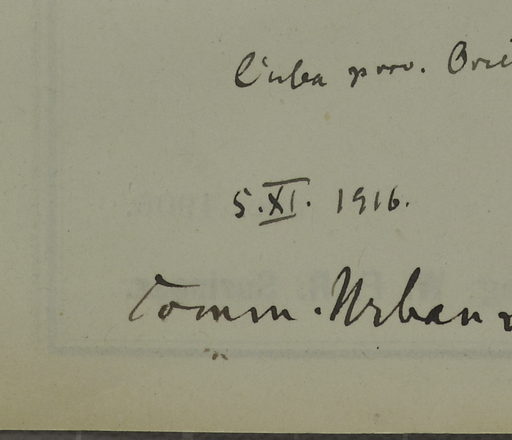 Cuba prov. Orie
5.XI. 1916.
Comm. Urban